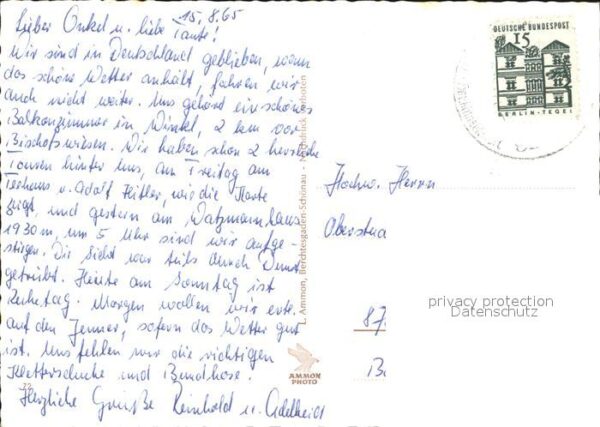 15.8.65
Lieber Onkel u. liebe Tante!
Wir sind in Deutschland geblieben, wenn
das schöne Wetter anhält, fahren wir
auch nicht weiter. Uns gehört ein schönes
Balkonzimmer in Winkl, 2 km vor
Bischofswiesen. Wir haben schon 2 herrliche
Touren hinter uns, am Freitag am
Teehaus v. Adolf Hitler, wie die Karte
zeigt, und gestern am Watzmannhaus
1930m, um 5 Uhr sind wir aufge-
stiegen. Die Sicht war teils durch Dunst
getrübt. Heute am Sonntag ist
Ruhetag. Morgen wollen wir evt.
auf den Jenner, sofern das Wetter gut
ist. Uns fehlen nur die richtigen
Kletterschuhe und Bundhose.
Herzliche Grüße Reinhold u. Adelheid
L. Ammon, Berchtesgaden-Schönau - Nachdruck verboten
AMMON
PHOTO
DEUTSCHE BUNDESPOST
15
BERLIN-TEGEL
Hochw. Herrn
87
privacy protection
Datenschutz